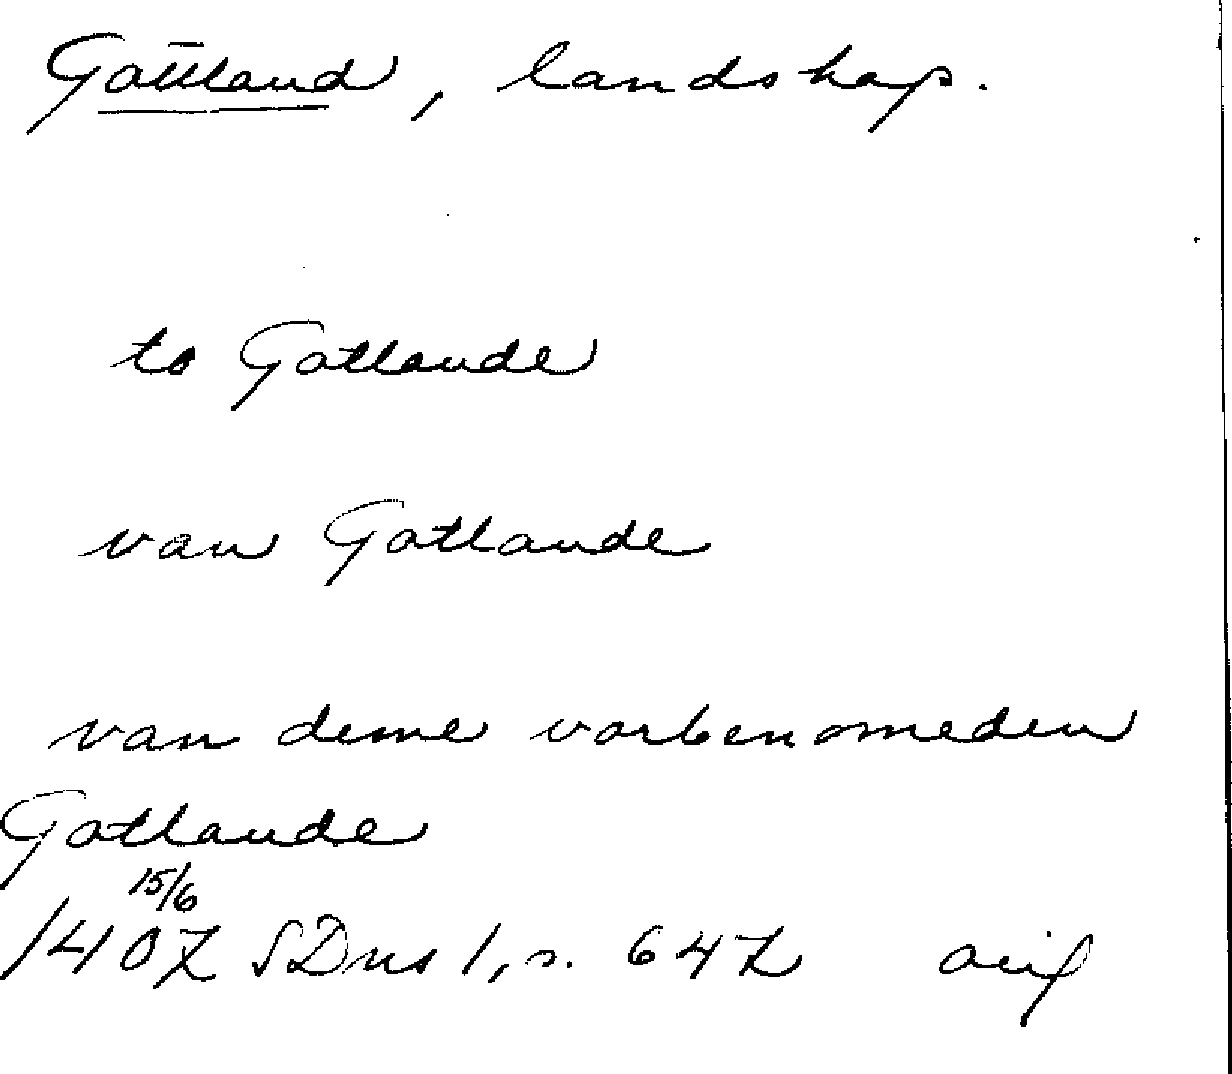 Gottland, landskap.
to Gotlande
van Gotlande
van deme vorbenomeden
Gotlande
15/6
1407 SDns 1, s. 647 avs